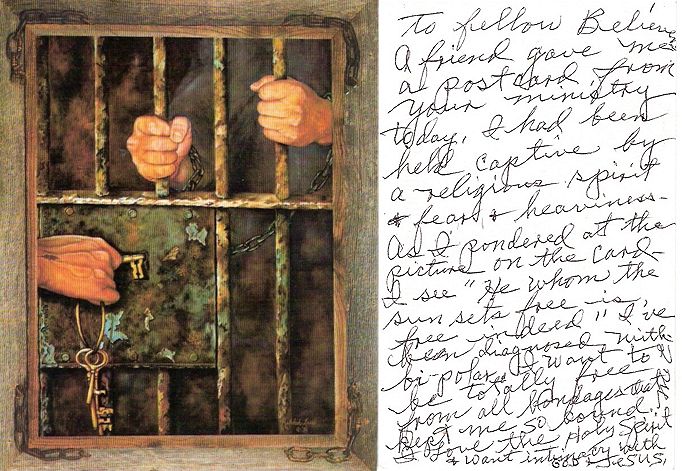 To fellow Believers
A friend gave me
a postcard from
your ministry
today. I had been
held captive by
a religious spirit
+ fear + heaviness-
As I pondered at the
picture on the card-
I see "He whom the
sun sets free is
free indeed" I've
been diagnosed with
bi polar. I want to
be totally free
from all bondages that
kept me so bound.
I love the Holy Spirit
+ want intimacy with
JESUS.